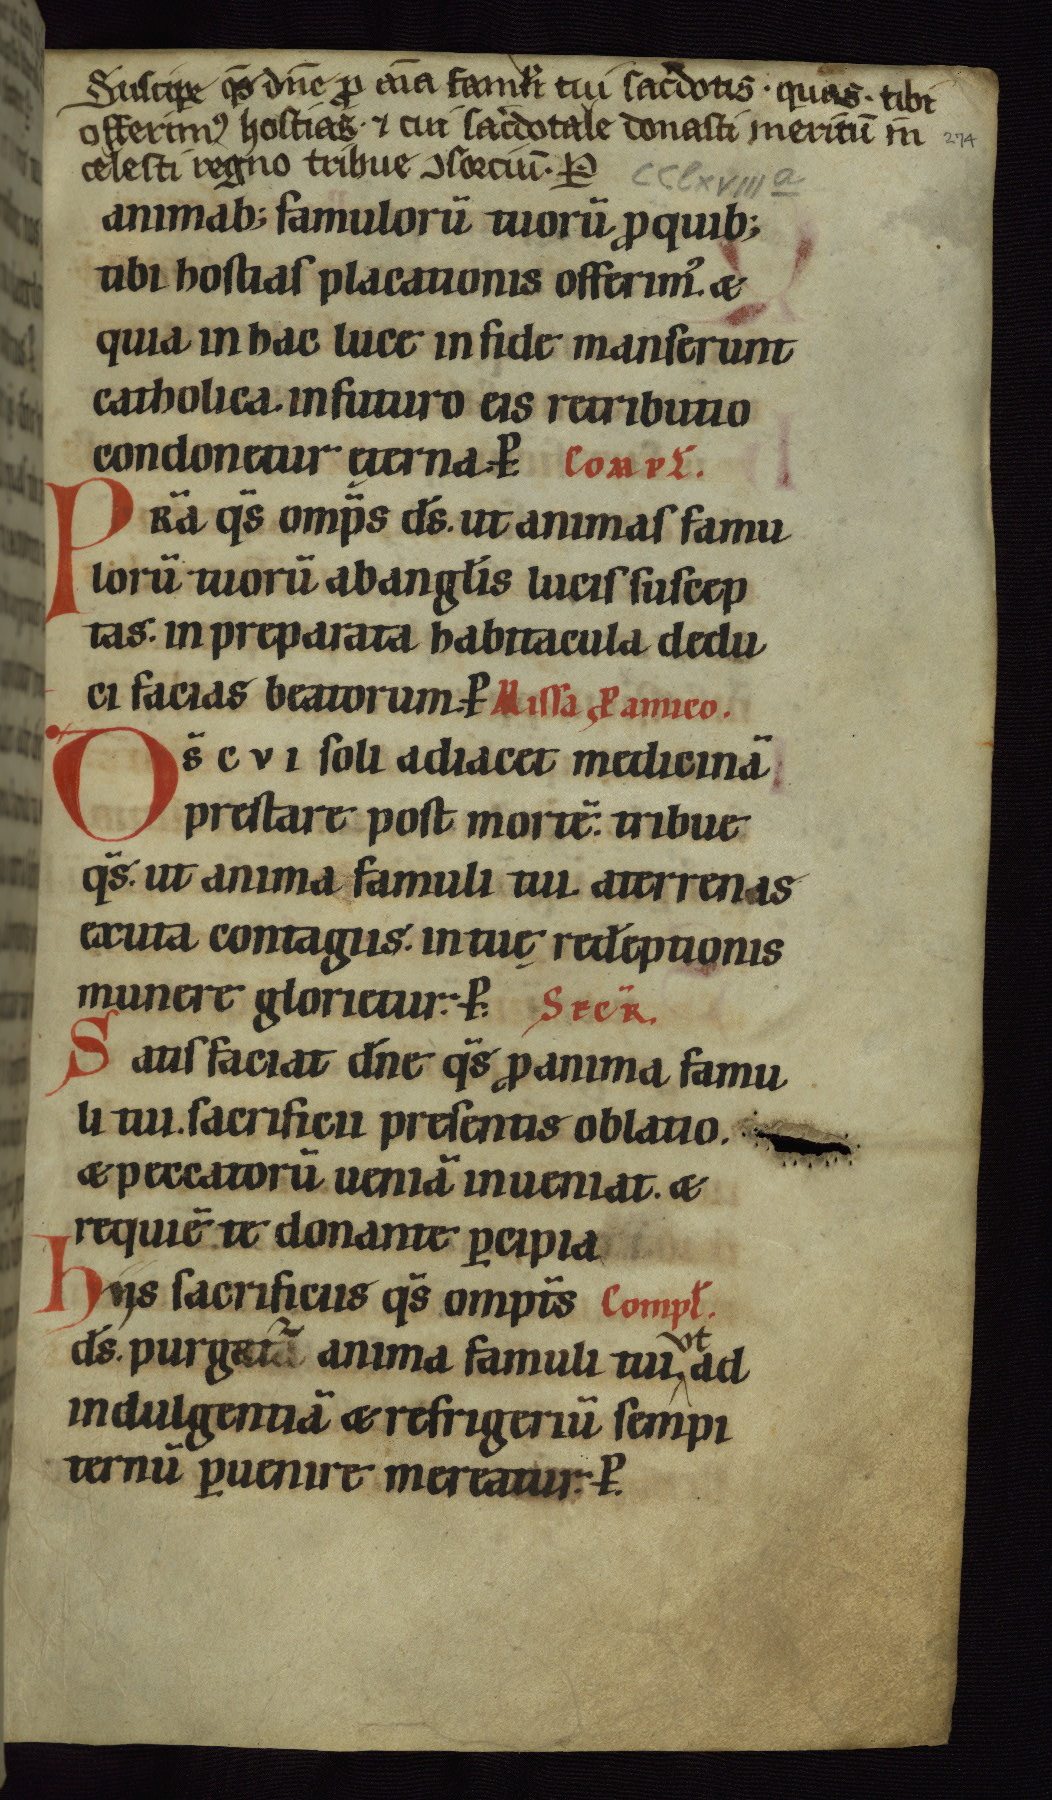 Suscipe q̄s dn̄e ꝓ aīa famłi tui sac̄dotis · quas · tibi
offerimꝰ hostias · ⁊ cui sac̄dotale donasti meritū in
celesti regno tribue ꝯsorciū · P̶
274
CClxviiiª
animab; famulorū tuorū ꝓ quib;
tibi hostias placationis offerimꝰ. &
quia in hac luce in fide manserunt
catholica. in futuro eis retributio
condonetur ęterna. P̶ Compł.
PRā q̄s omp̄s d̄s. ut animas famu
lorū tuorū ab angłis lucis suscep
tas. in preparata habitacula dedu
ci facias beatorum. P̶ Missa ꝓ amico.
Ds̄ cvi soli adiacet medicinā
prestare post mortē. tribue
q̄s. ut anima famuli tui. a terrenas
exuta contagiis. in tuę redēptionis
munere glorietur. P̶. Secr̄.
Satisfaciat dn̄e q̄s ꝓ anima famu
li tui. sacrificii presentis oblatio.
& peccatorū ueniā inueniat. &
requiē te donante ꝑcipia
hiis sacrificiis q̄s ompt̄s Compł.
d̄s. purgata anima famuli tui, vt ad
indulgentiā & refrigeriū sempi
ternū ꝑuenire mereatur. P̶.